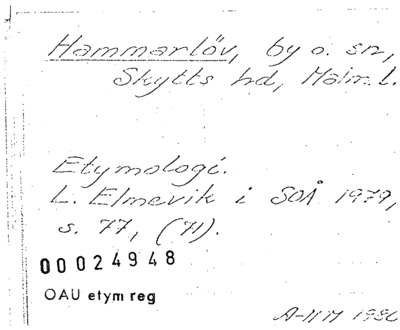 Hammarlöv, by o. sn,
Skytts hd, Malm. l.
Etymologi.
L. Elmevik i SOÅ 1979,
s. 77, (71).
00024948
OAU etym reg
1980